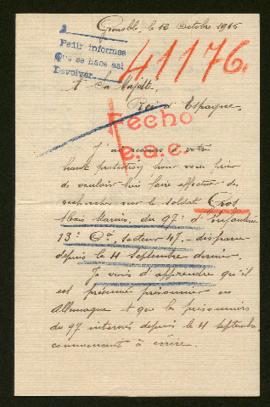 Grenoble, le 12 Octobre 1915
Pedir informes
que se hace así
Devolver.
41176.
A Sa Majesté
Roi d'Espagne,
Fecho
J'ai recours à votre
haute protection pour vous prier
de vouloir bien faire effectuer des
recherches sur le soldat Gros
Marius, du 97e d'Infanterie
13e Cie, secteur 47, disparu
depuis le 4 Septembre dernier.
Je viens d'apprendre qu'il
est présumé prisonnier en
Allemagne et que les prisonniers
du 97 internés depuis le 4 septembre
commencent à écrire